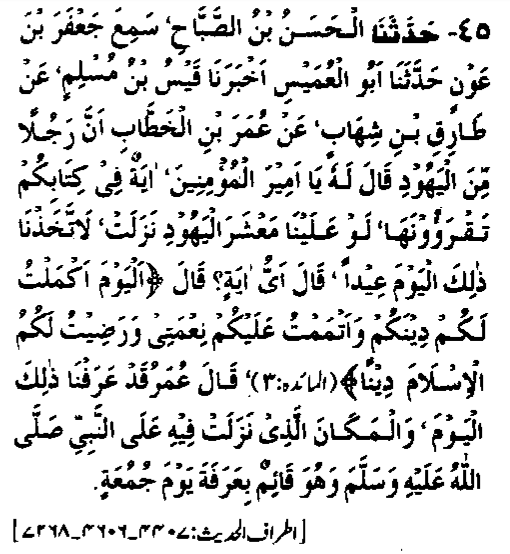 ٤٥- حَدَّثَنَا الْحَسَنُ بْنُ الصَّبَّاحِ، سَمِعَ جَعْفَرَ بْنَ
عَوْنٍ حَدَّثَنَا اَبُو الْعُمَيْسِ اَخْبَرَنَا قَيْسُ بْنُ مُسْلِمٍ، عَنْ
طَارِقِ بْنِ شِهَابٍ، عَنْ عُمَرَ بْنِ الْخَطَّابِ اَنَّ رَجُلًا
مِّنَ الْيَهُوْدِ قَالَ لَهُ يَا اَمِيْرَ الْمُؤْمِنِيْنَ، اٰيَةٌ فِيْ كِتَابِكُمْ
تَقْرَؤُوْنَهَا، لَوْ عَلَيْنَا مَعْشَرَ الْيَهُوْدِ نَزَلَتْ، لَاتَّخَذْنَا
ذٰلِكَ الْيَوْمَ عِيْداً، قَالَ اَىُّ اٰيَةٍ؟ قَالَ ﴿اَلْيَوْمَ اَكْمَلْتُ
لَكُمْ دِيْنَكُمْ وَاَتْمَمْتُ عَلَيْكُمْ نِعْمَتِىْ وَرَضِيْتُ لَكُمُ
الْاِسْلَامَ دِيْنًا﴾ (المائدہ:۳)، قَالَ عُمَرُ قَدْ عَرَفْنَا ذٰلِكَ
الْيَوْمَ، وَالْمَكَانَ الَّذِىْ نَزَلَتْ فِيْهِ عَلَى النَّبِيِّ صَلَّى
اللّٰهُ عَلَيْهِ وَسَلَّمَ وَهُوَ قَائِمٌ بِعَرَفَةَ يَوْمَ جُمُعَةٍ.
[اطراف الحدیث: ۴۴۰۷_۴۶۰۶_۷۲۶۸]